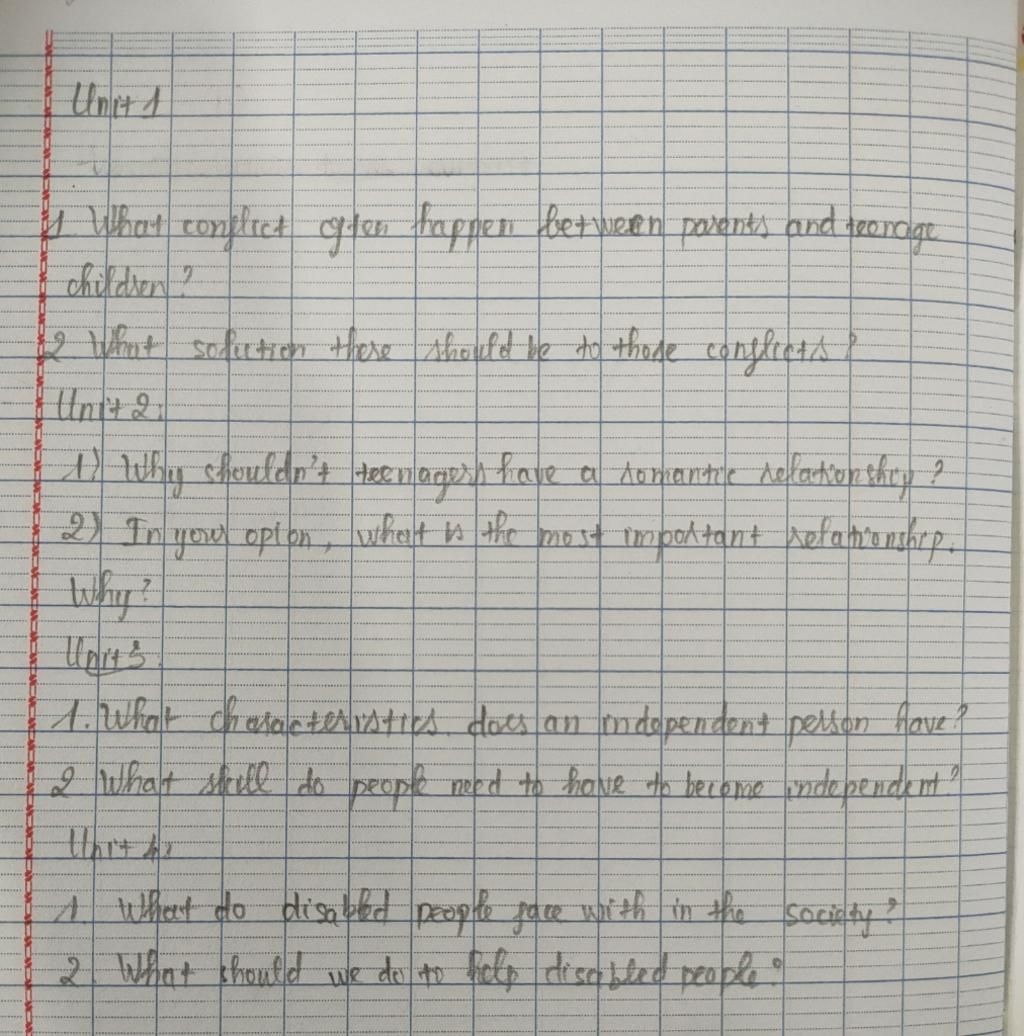 Unit 1
1 What conflict often happen between parents and teenage
children?
2 What solution there should be to those conflicts?
Unit 2:
1) Why shouldn't teenagers have a romantic relationship?
2) In your option, what is the most important relationship.
Why?
Unit 3
1. What characteristics does an independent person have?
2 What skill do people need to have to become independent?
Unit 4:
1. What do disabled people face with in the society?
2. What should we do to help disabled people?